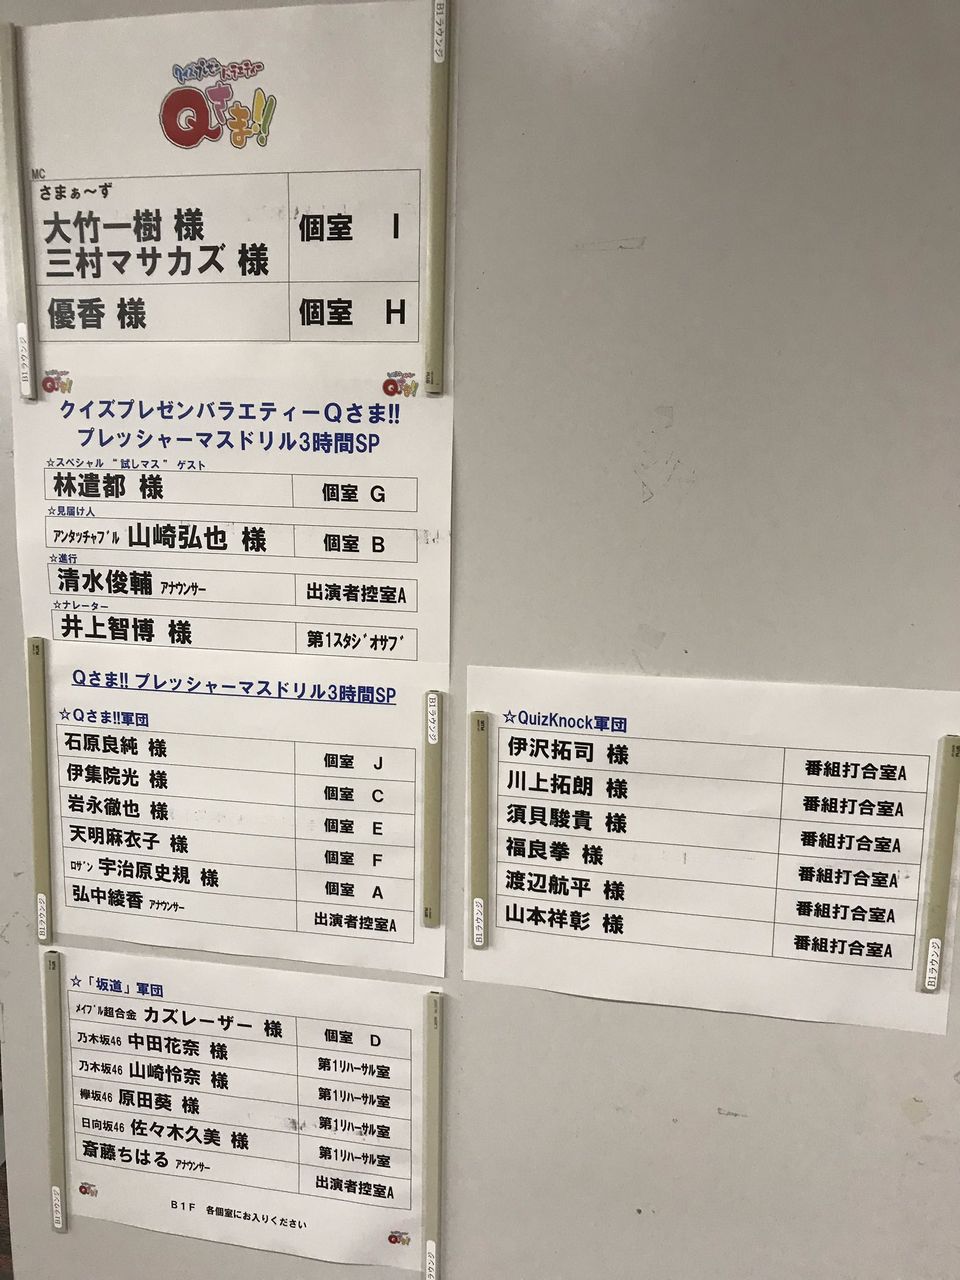 B1ラウンジ
クイズプレゼンバラエティー
Qさま!!
MC
さまぁ～ず
大竹一樹 様
三村マサカズ 様
個室 I
優香 様
個室 H
B1ラウンジ
クイズプレゼンバラエティーQさま!!
プレッシャーマスドリル3時間SP
☆スペシャル “試しマス” ゲスト
林遣都 様
個室 G
☆見届け人
アンタッチャブル 山崎弘也 様
個室 B
☆進行
清水俊輔 アナウンサー
出演者控室A
☆ナレーター
井上智博 様
第1スタジオサブ
Qさま!! プレッシャーマスドリル3時間SP
B1ラウンジ
☆Qさま!!軍団
石原良純 様
個室 J
伊集院光 様
個室 C
岩永徹也 様
個室 E
天明麻衣子 様
個室 F
ロザン 宇治原史規 様
個室 A
弘中綾香 アナウンサー
出演者控室A
B1ラウンジ
☆QuizKnock軍団
伊沢拓司 様
番組打合室A
川上拓朗 様
番組打合室A
須貝駿貴 様
番組打合室A
福良拳 様
番組打合室A
渡辺航平 様
番組打合室A
山本祥彰 様
番組打合室A
B1ラウンジ
B1ラウンジ
☆「坂道」軍団
メイプル超合金 カズレーザー 様
個室 D
乃木坂46 中田花奈 様
第1リハーサル室
乃木坂46 山崎怜奈 様
第1リハーサル室
欅坂46 原田葵 様
第1リハーサル室
日向坂46 佐々木久美 様
第1リハーサル室
斎藤ちはる アナウンサー
出演者控室A
B1F 各個室にお入りください
B1ラウンジ